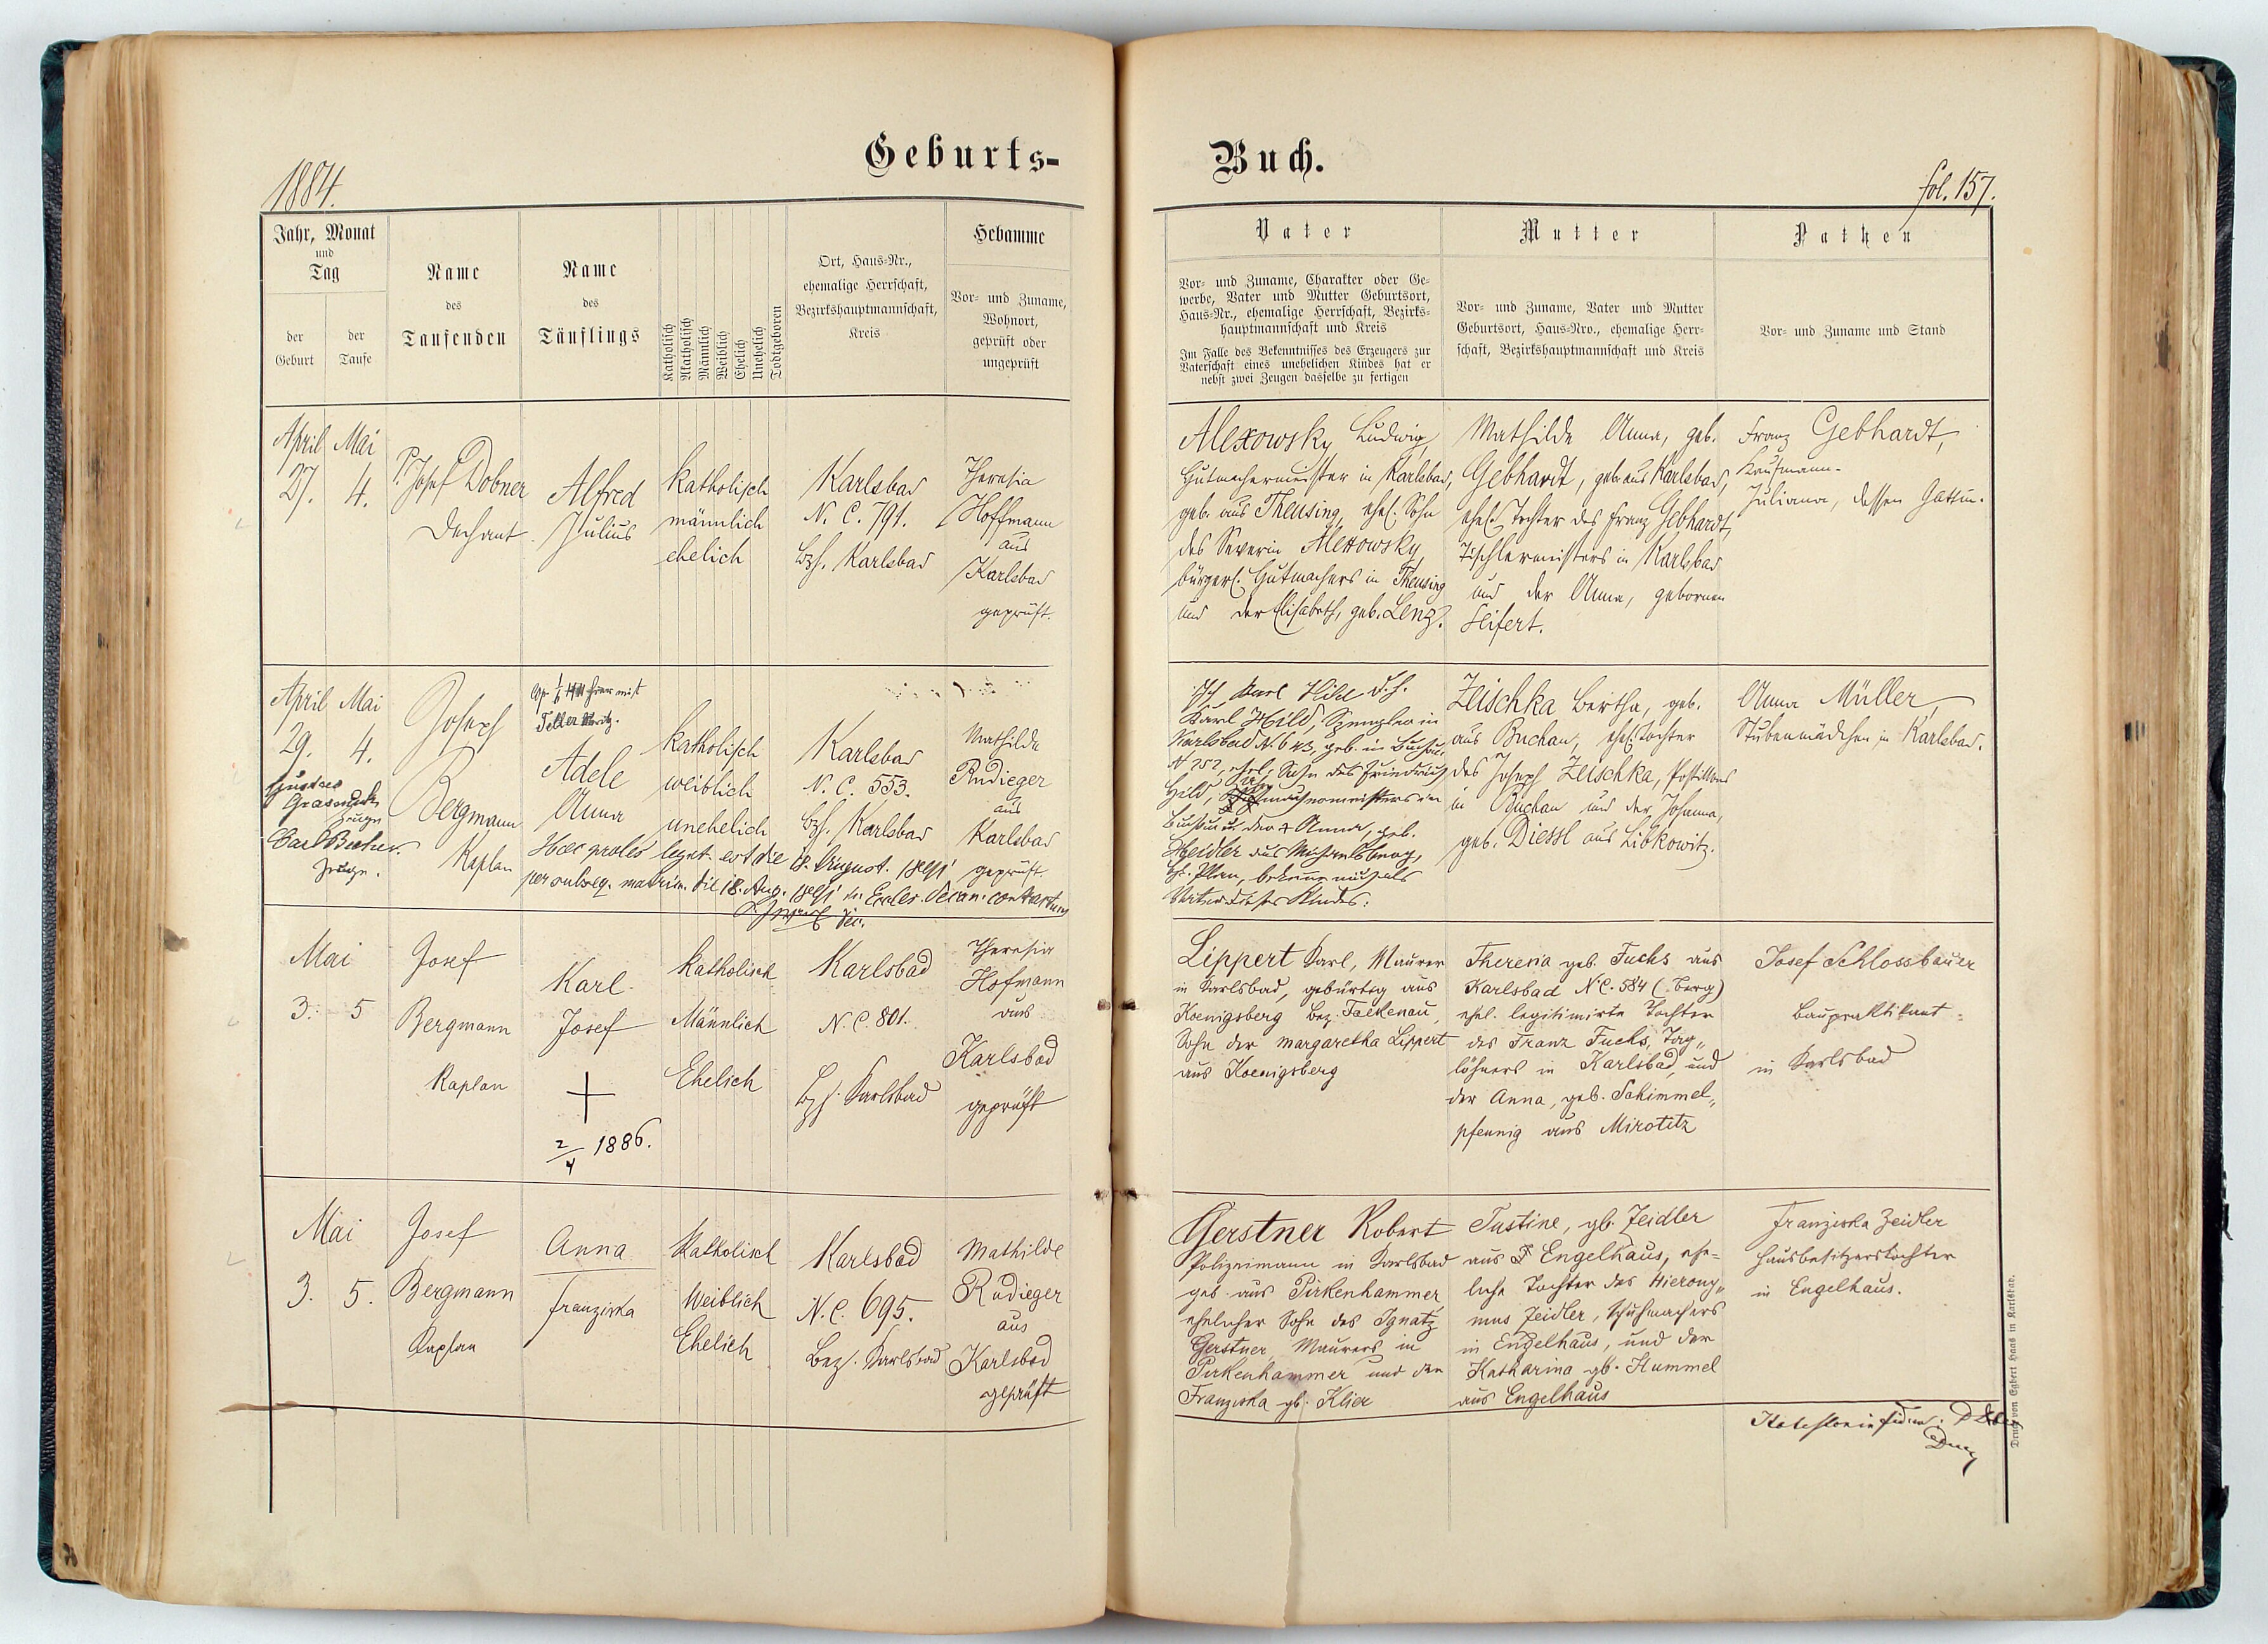 Geburts-
Buch.
1884.
fol. 157.
Jahr, Monat
und
Tag
der
Geburt
der
Taufe
Name
des
Taufenden
Name
des
Täuflings
Katholisch
Akatholisch
Männlich
Weiblich
Ehelich
Unehelich
Todtgeboren
Ort, Haus-Nr.,
ehemalige Herrschaft,
Bezirkshauptmannschaft,
Kreis
Hebamme
Vor- und Zuname,
Wohnort,
geprüft oder
ungeprüft
Vater
Vor- und Zuname, Charakter oder Ge-
werbe, Vater und Mutter Geburtsort,
Haus-Nr., ehemalige Herrschaft, Bezirks-
hauptmannschaft und Kreis
Im Falle des Bekenntnisses des Erzeugers zur
Vaterschaft eines unehelichen Kindes hat er
nebst zwei Zeugen dasselbe zu fertigen
Mutter
Vor- und Zuname, Vater und Mutter
Geburtsort, Haus-Nro., ehemalige Herr-
schaft, Bezirkshauptmannschaft und Kreis
Pathen
Vor- und Zuname und Stand
April
27.
Mai
4.
P. Josef Dobner
Dechant
Alfred
Julius
katholisch
männlich
ehelich
Karlsbad
N. C. 791.
Bzh. Karlsbad
Theresia
Hoffmann
aus
Karlsbad
geprüft.
Alexowsky Ludwig,
Hutmachermeister in Karlsbad,
geb. aus Theusing, ehel. Sohn
des Severin Alexowsky,
bürgerl. Hutmachers in Theusing
und der Elisabeth, geb. Lenz.
Mathilde Anna, geb.
Gebhardt, geb. aus Karlsbad,
ehel. Tochter des Franz Gebhardt,
Tischlermeisters in Karlsbad
und der Anna, gebornen
Seifert.
Franz Gebhardt,
Kaufmann.
Juliana, dessen Gattin.
April
29.
Mai
4.
Gustav
Zeuge
Carl Becher
Zeuge.
Joseph
Bergmann
Kaplan
Teller Moritz.
Adele
Anna
katholisch
weiblich
unehelich
Karlsbad
N. C. 553.
Bzh. Karlsbad
Mathilde
Rudieger
aus
Karlsbad
geprüft.
Haec proles legit. est die 18. August. 1891
per subseq. matrim. die 18. Aug. 1891 in Eccles. decan. contractum
Dec.
Ich Karl Hild d. h.
Karl Hild, Spengler in
Karlsbad N. 643, geb. in Buchau
N 252, ehel. Sohn des Friedrich
Hild, machermeisters in
Buchau u. der Anna, geb.
Heidler aus Michaelsberg,
Bz. Plan, bekenne mich als
Vater dieses Kindes:
Zeischka Bertha, geb.
aus Buchau, ehel. Tochter
des Joseph Zeischka, Postillons
in Buchau und der Johanna,
geb. Diessl aus Libkowitz.
Anna Müller,
Stubenmädchen in Karlsbad.
Mai
3.
5
Josef
Bergmann
Kaplan
Karl
Josef
2/4 1886.
katholisch
Männlich
Ehelich
Karlsbad
N. C. 801.
Bzh. Karlsbad
Theresia
Hofmann
aus
Karlsbad
geprüft
Lippert Karl, Maurer
in Karlsbad, gebürtig aus
Koenigsberg Bez. Falkenau,
Sohn der Margaretha Lippert
aus Koenigsberg
Theresia geb. Fuchs aus
Karlsbad N. C. 584 (Berg)
ehel. legitimirte Tochter
des Franz Fuchs, Tag„
löhners in Karlsbad, und
der Anna, geb. Schimmel„
pfennig aus Mirotitz
Josef Schlossbauer
Baupraktikant
in Karlsbad
Mai
3.
5.
Josef
Bergmann
Kaplan
Anna
Franziska
Katholisch
Weiblich
Ehelich
Karlsbad
N. C. 695.
Bez. Karlsbad
Mathilde
Rudieger
aus
Karlsbad
geprüft
Gerstner Robert
Polizeimann in Karlsbad
geb. aus Pirkenhammer
ehelicher Sohn des Ignatz
Gerstner, Maurers in
Pirkenhammer und der
Franziska gb. Klier
Justine, gb. Zeidler
aus Engelhaus, ehe=
liche Tochter des Hierony„
mus Zeidler, Schuhmachers
in Engelhaus, und der
Katharina gb. Hummel
aus Engelhaus
Franziska Zeidler
Hausbesitzerstochter
in Engelhaus.
Druck von Egbert Haas in Karlsbad.